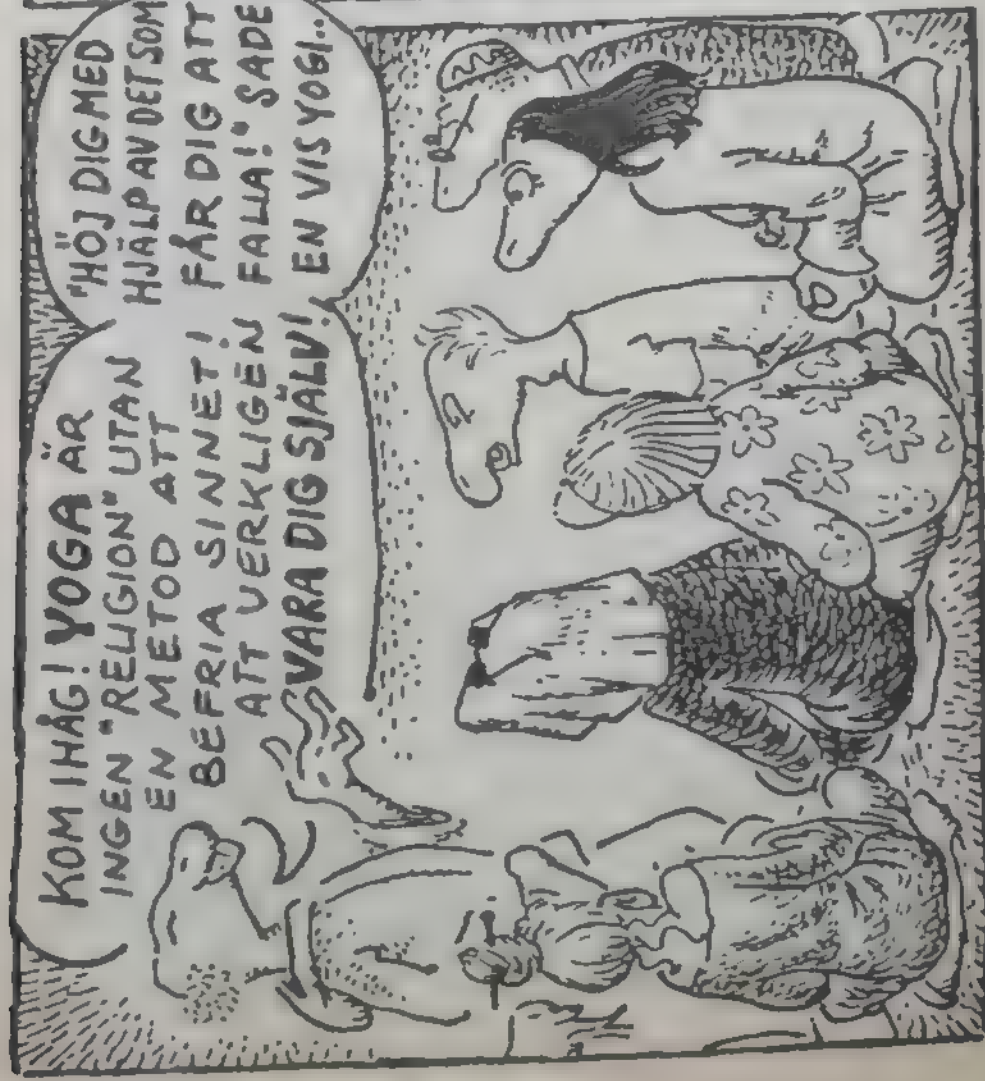 KOM IHÅG! YOGA ÄR
INGEN "RELIGION" UTAN
EN METOD ATT
BEFRIA SINNET!
ATT VERKLIGEN
VARA DIG SJÄLV!
"HÖJ DIG MED
HJÄLP AV DET SOM
FÅR DIG ATT
FALLA!" SADE
EN VIS YOGI..